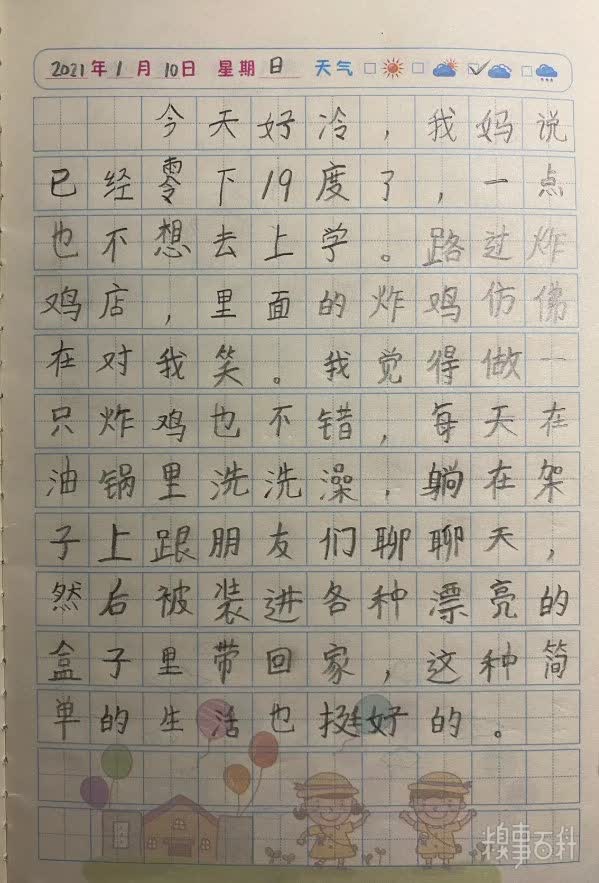 2021年1月10日 星期日 天气
今天好冷，我妈说
已经零下19度了，一点
也不想去上学。路过炸
鸡店，里面的炸鸡仿佛
在对我笑。我觉得做一
只炸鸡也不错，每天在
油锅里洗洗澡，躺在架
子上跟朋友们聊聊天，
然后被装进各种漂亮的
盒子里带回家，这种简
单的生活也挺好的。
糗事百科